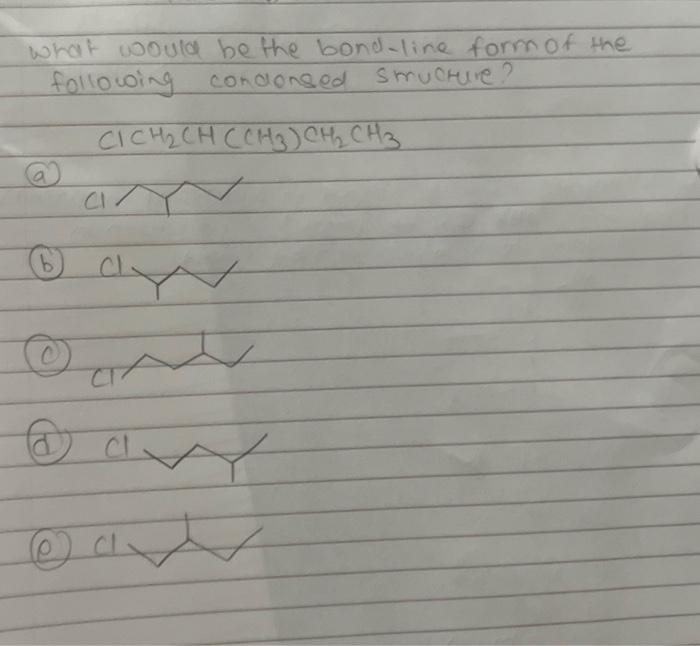 what would be the bond-line form of the
following condonsed smucture?
ClCH2CH(CH3)CH2CH3
a Cl
b Cl
c Cl
d Cl
e Cl